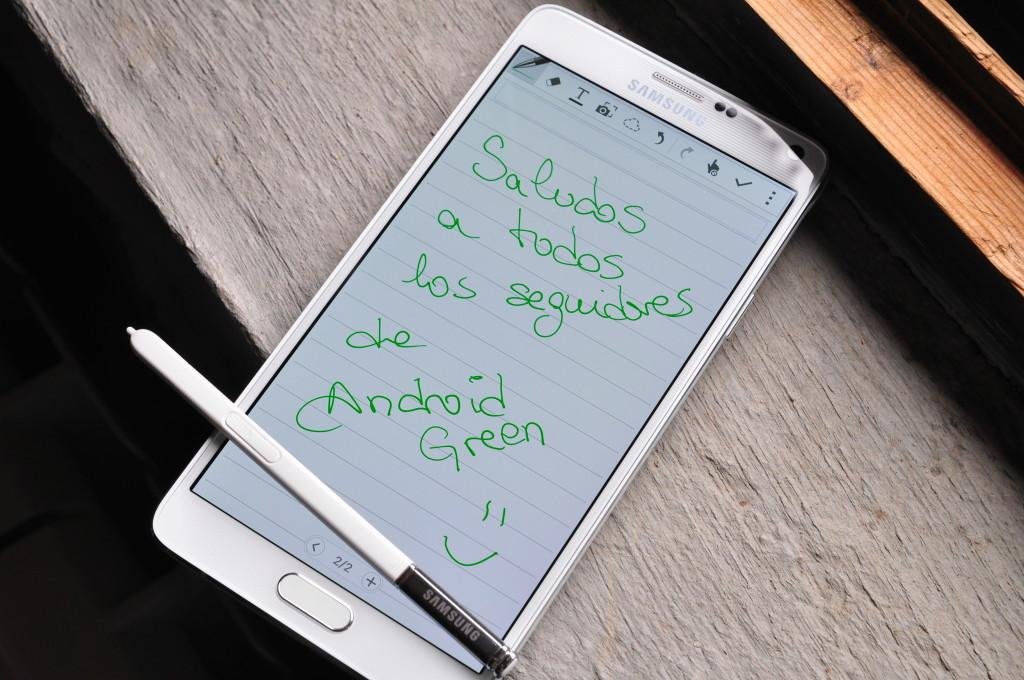 SAMSUNG
T
Saludos
a todos
los seguidores
de
Android
Green
2/2
SAMSUNG